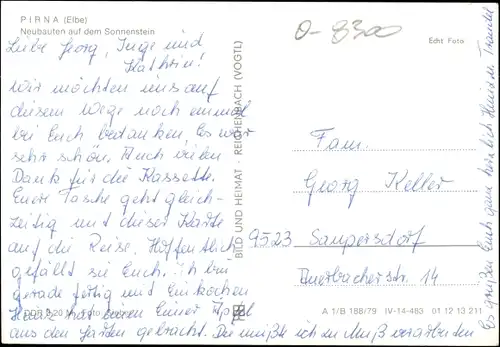 PIRNA (Elbe)
Neubauten auf dem Sonnenstein
Liebe Georg, Inge und
Kathrin!
Wir möchten uns auf
diesem Wege noch einmal
bei Euch bedanken. Es war
sehr schön. Auch vielen
Dank für die Kassette.
Eure Tasche geht gleich-
zeitig und dieser Karte
auf die Reise. Hoffentlich
gefällt sie Euch. Ich bin
gerade fertig mit Einkochen
Heinz hat einen Eimer Äpfel
aus dem Garten gebracht. Die mußte ich zu Muß verarbeiten
Es grüßen Euch ganz herzlich Heinz u. Traudel
BILD UND HEIMAT · REICHENBACH (VOGTL)
0-8300
Echt Foto
Fam.
Georg Keller
9523 Saupersdorf
Auerbacherstr. 14
A 1/B 188/79 IV-14-483 01 12 13 211